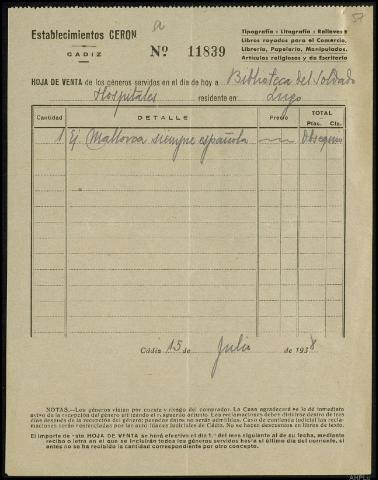 Establecimientos CERON
CADIZ
Nº 11839
Tipografía : Litografía : Relieves
Libros rayados para el Comercio,
Librería, Papelería, Manipulados.
Artículos religiosos y de Escritorio
HOJA DE VENTA de los géneros servidos en el día de hoy a Biblioteca del Soldado
Hospitales residente en Lugo
Cantidad DETALLE Precio TOTAL
Ptas. Cts.
1 Ej. Mallorca siempre española Obsequio
Cádiz 15 de Julio de 1938
NOTAS.- Los géneros viajan por cuenta y riesgo del comprador. La Casa agradecerá se le dé inmediato
aviso de la recepción del género utilizando el
después de la recepción del género; pasados éstos no serán admitidas. Caso de contienda judicial las recla-
maciones serán Cádiz. No se hacen descuentos en libros de texto.
El importe de esta HOJA DE VENTA se hará efectivo el día 1.º del mes siguiente al de su fecha, mediante
recibo o letra en el que se incluirán todos los géneros servidos hasta el último día del corriente, si
antes no se ha recibido la cantidad correspondiente por otro concepto.